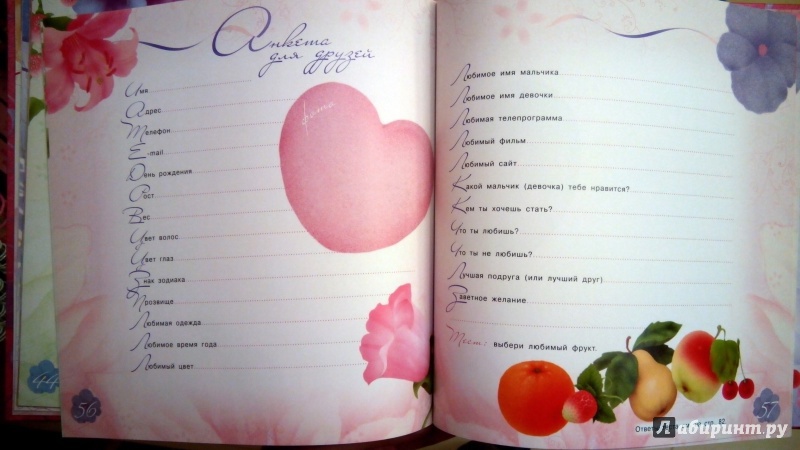 Анкета
для друзей
Имя
Адрес
Телефон
E-mail
День рождения
Рост
Вес
Цвет волос
Цвет глаз
Знак зодиака
Прозвище
Любимая одежда
Любимое время года
Любимый цвет
фото
44
56
Любимое имя мальчика
Любимое имя девочки
Любимая телепрограмма
Любимый фильм
Любимый сайт
Какой мальчик (девочка) тебе нравится?
Кем ты хочешь стать?
Что ты любишь?
Что ты не любишь?
Лучшая подруга (или лучший друг)
Заветное желание
Тест: выбери любимый фрукт.
Ответ стр. 62
57
Лабиринт.ру